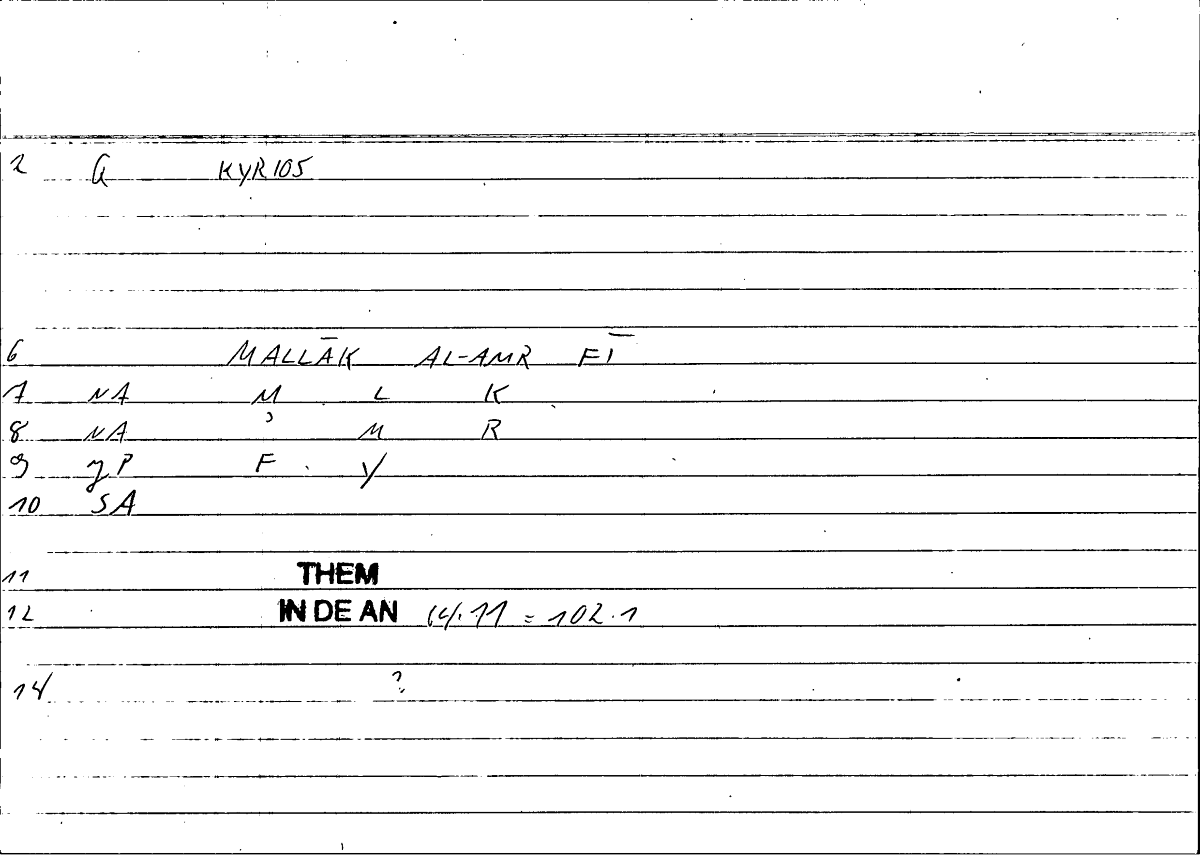 2 G KYR105
6 MALLĀK AL-AMR FĪ
7 NA M L K
8 NA ʾ M R
9 P F Y
10 SA
11 THEM
12 IN DE AN 14.11 = 102.1
14 ?